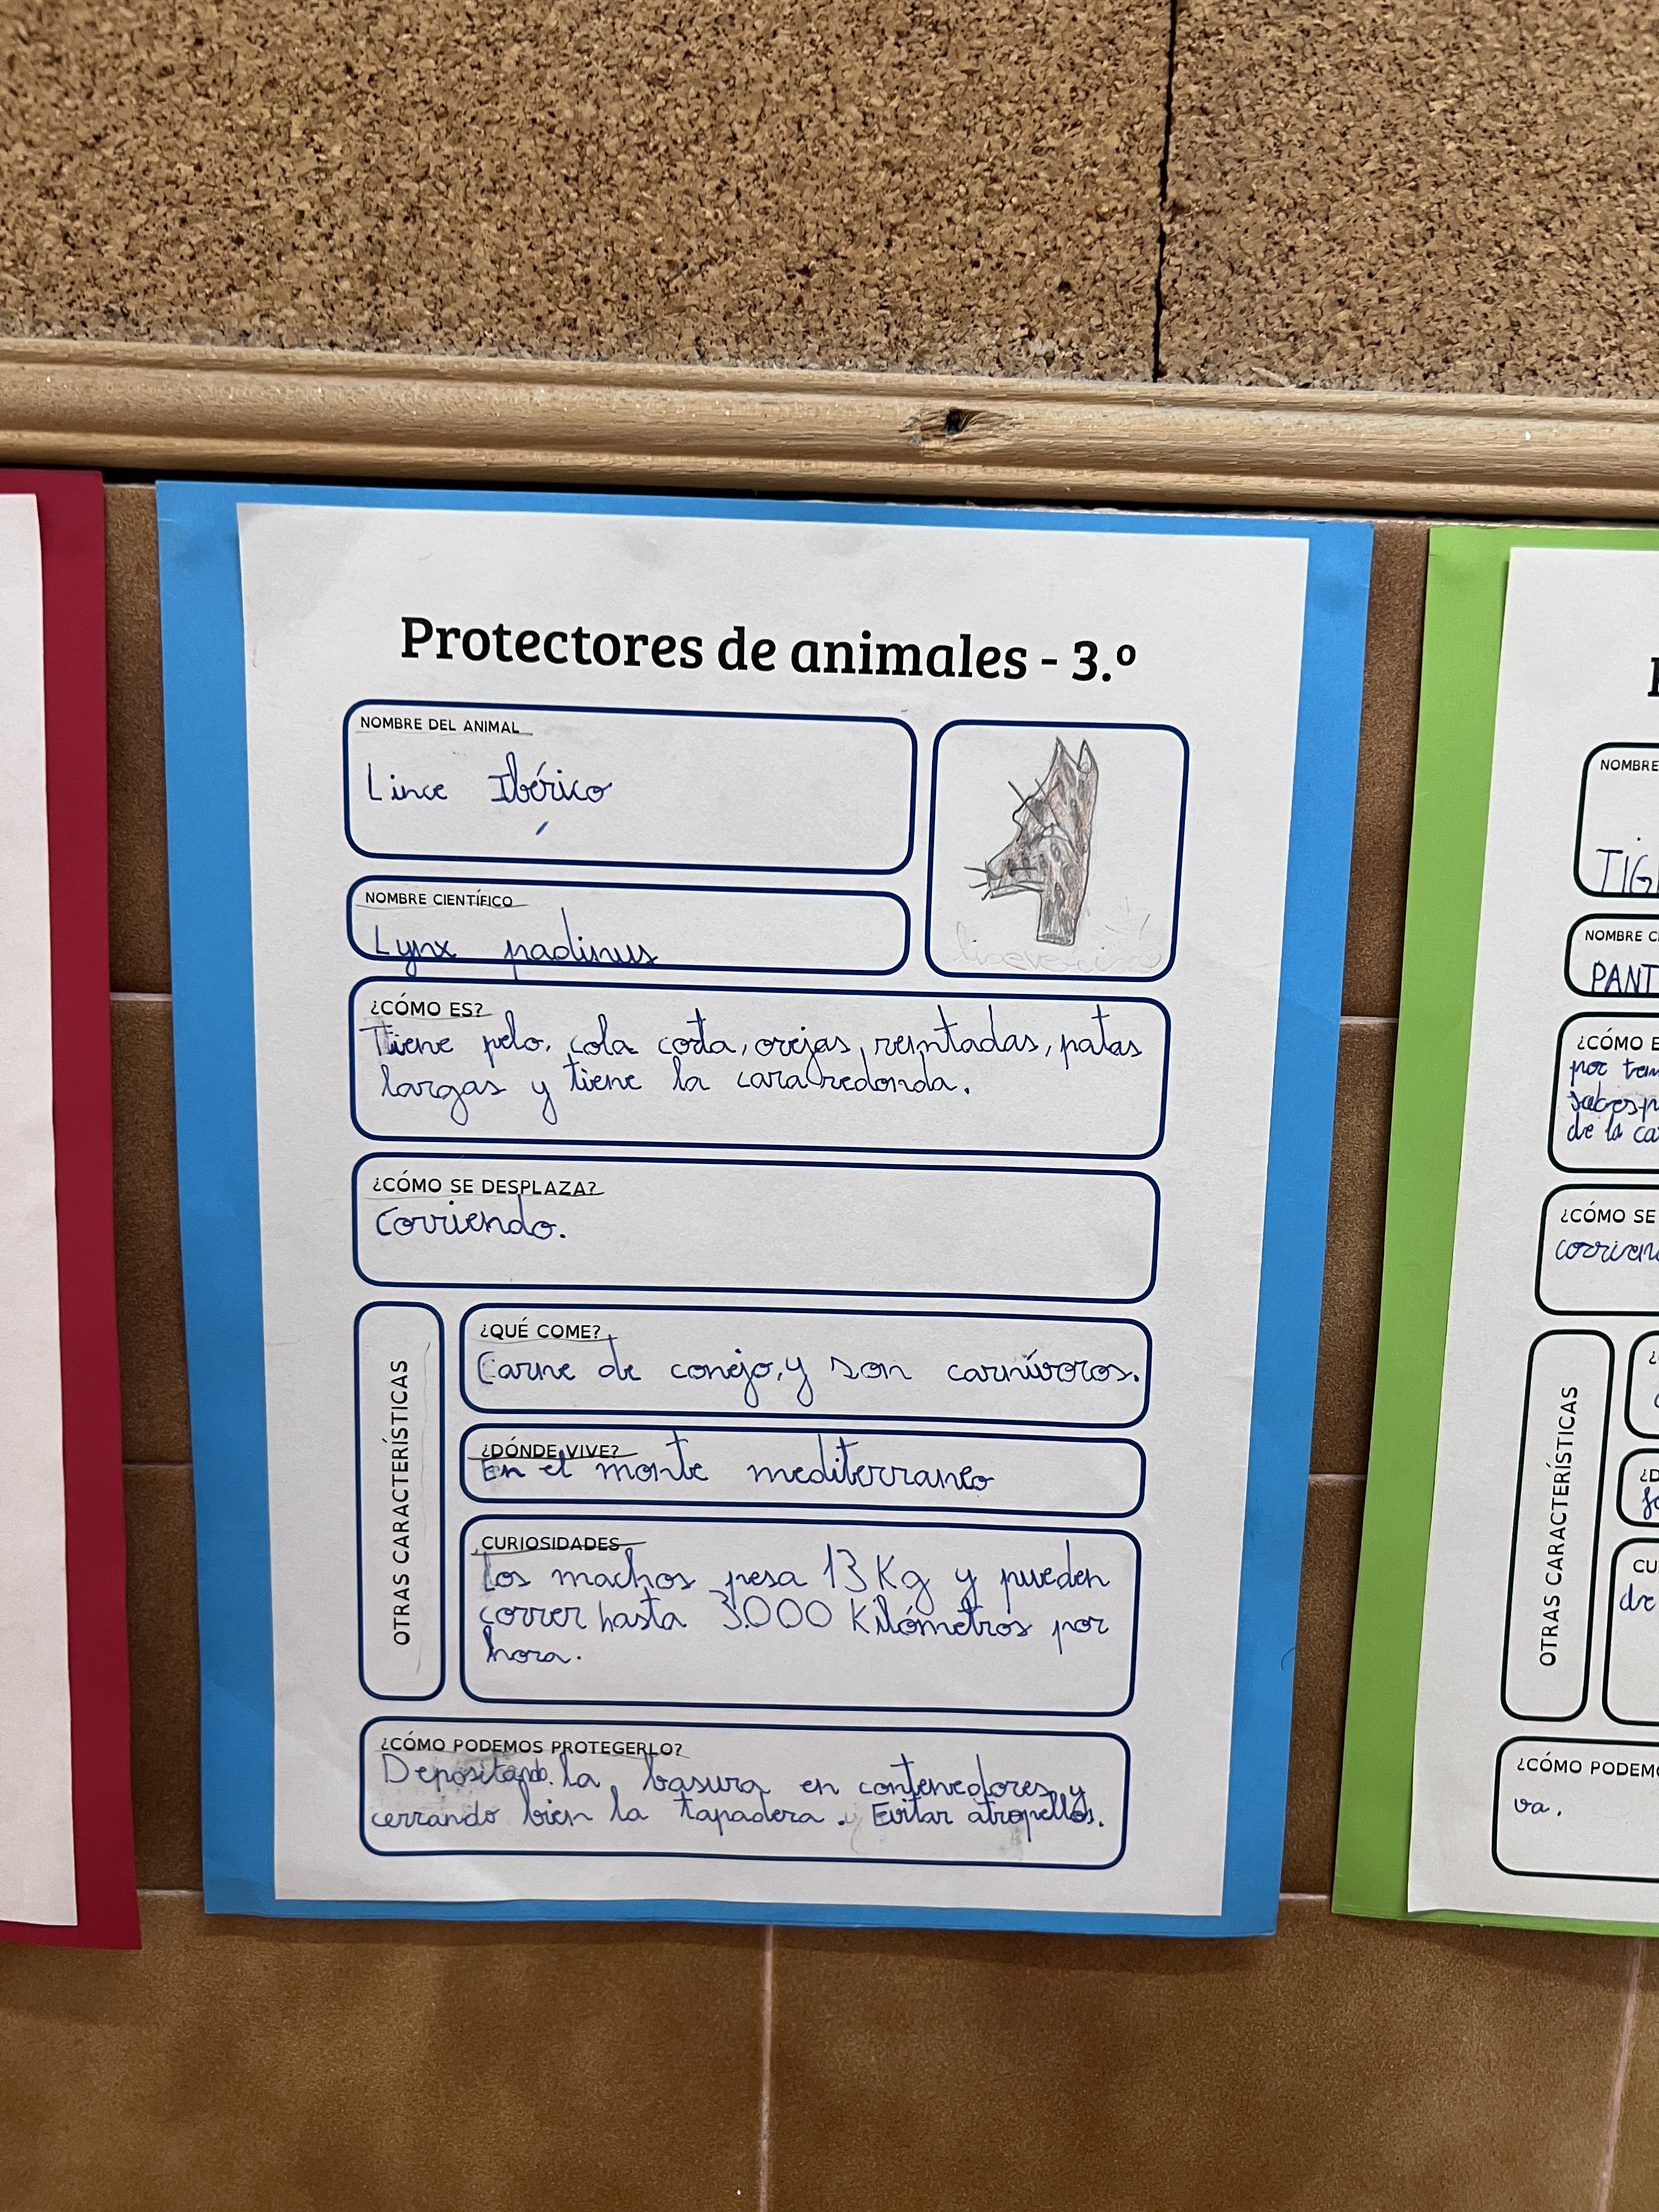 Protectores de animales - 3.º
NOMBRE DEL ANIMAL
Lince Ibérico
NOMBRE CIENTÍFICO
Lynx padinus
¿CÓMO ES?
Tiene pelo, cola corta, orejas, puntadas, patas
largas y tiene la cara redonda.
¿CÓMO SE DESPLAZA?
Corriendo.
OTRAS CARACTERÍSTICAS
¿QUÉ COME?
Carne de conejo, y son carnívoros.
¿DÓNDE VIVE?
En el monte mediterraneo
CURIOSIDADES
Los machos pesa 13 Kg y pueden
correr hasta 3.000 Kilómetros por
hora.
¿CÓMO PODEMOS PROTEGERLO?
Depositando la basura en contenedores y
cerrando bien la tapadera. Evitar atropellos.
NOMBRE
TIG
NOMBRE CI
PANT
¿CÓMO E
por ten
de la ca
¿CÓMO SE
corrien
OTRAS CARACTERÍSTICAS
¿D
CU
de
¿CÓMO PODEMO
va.